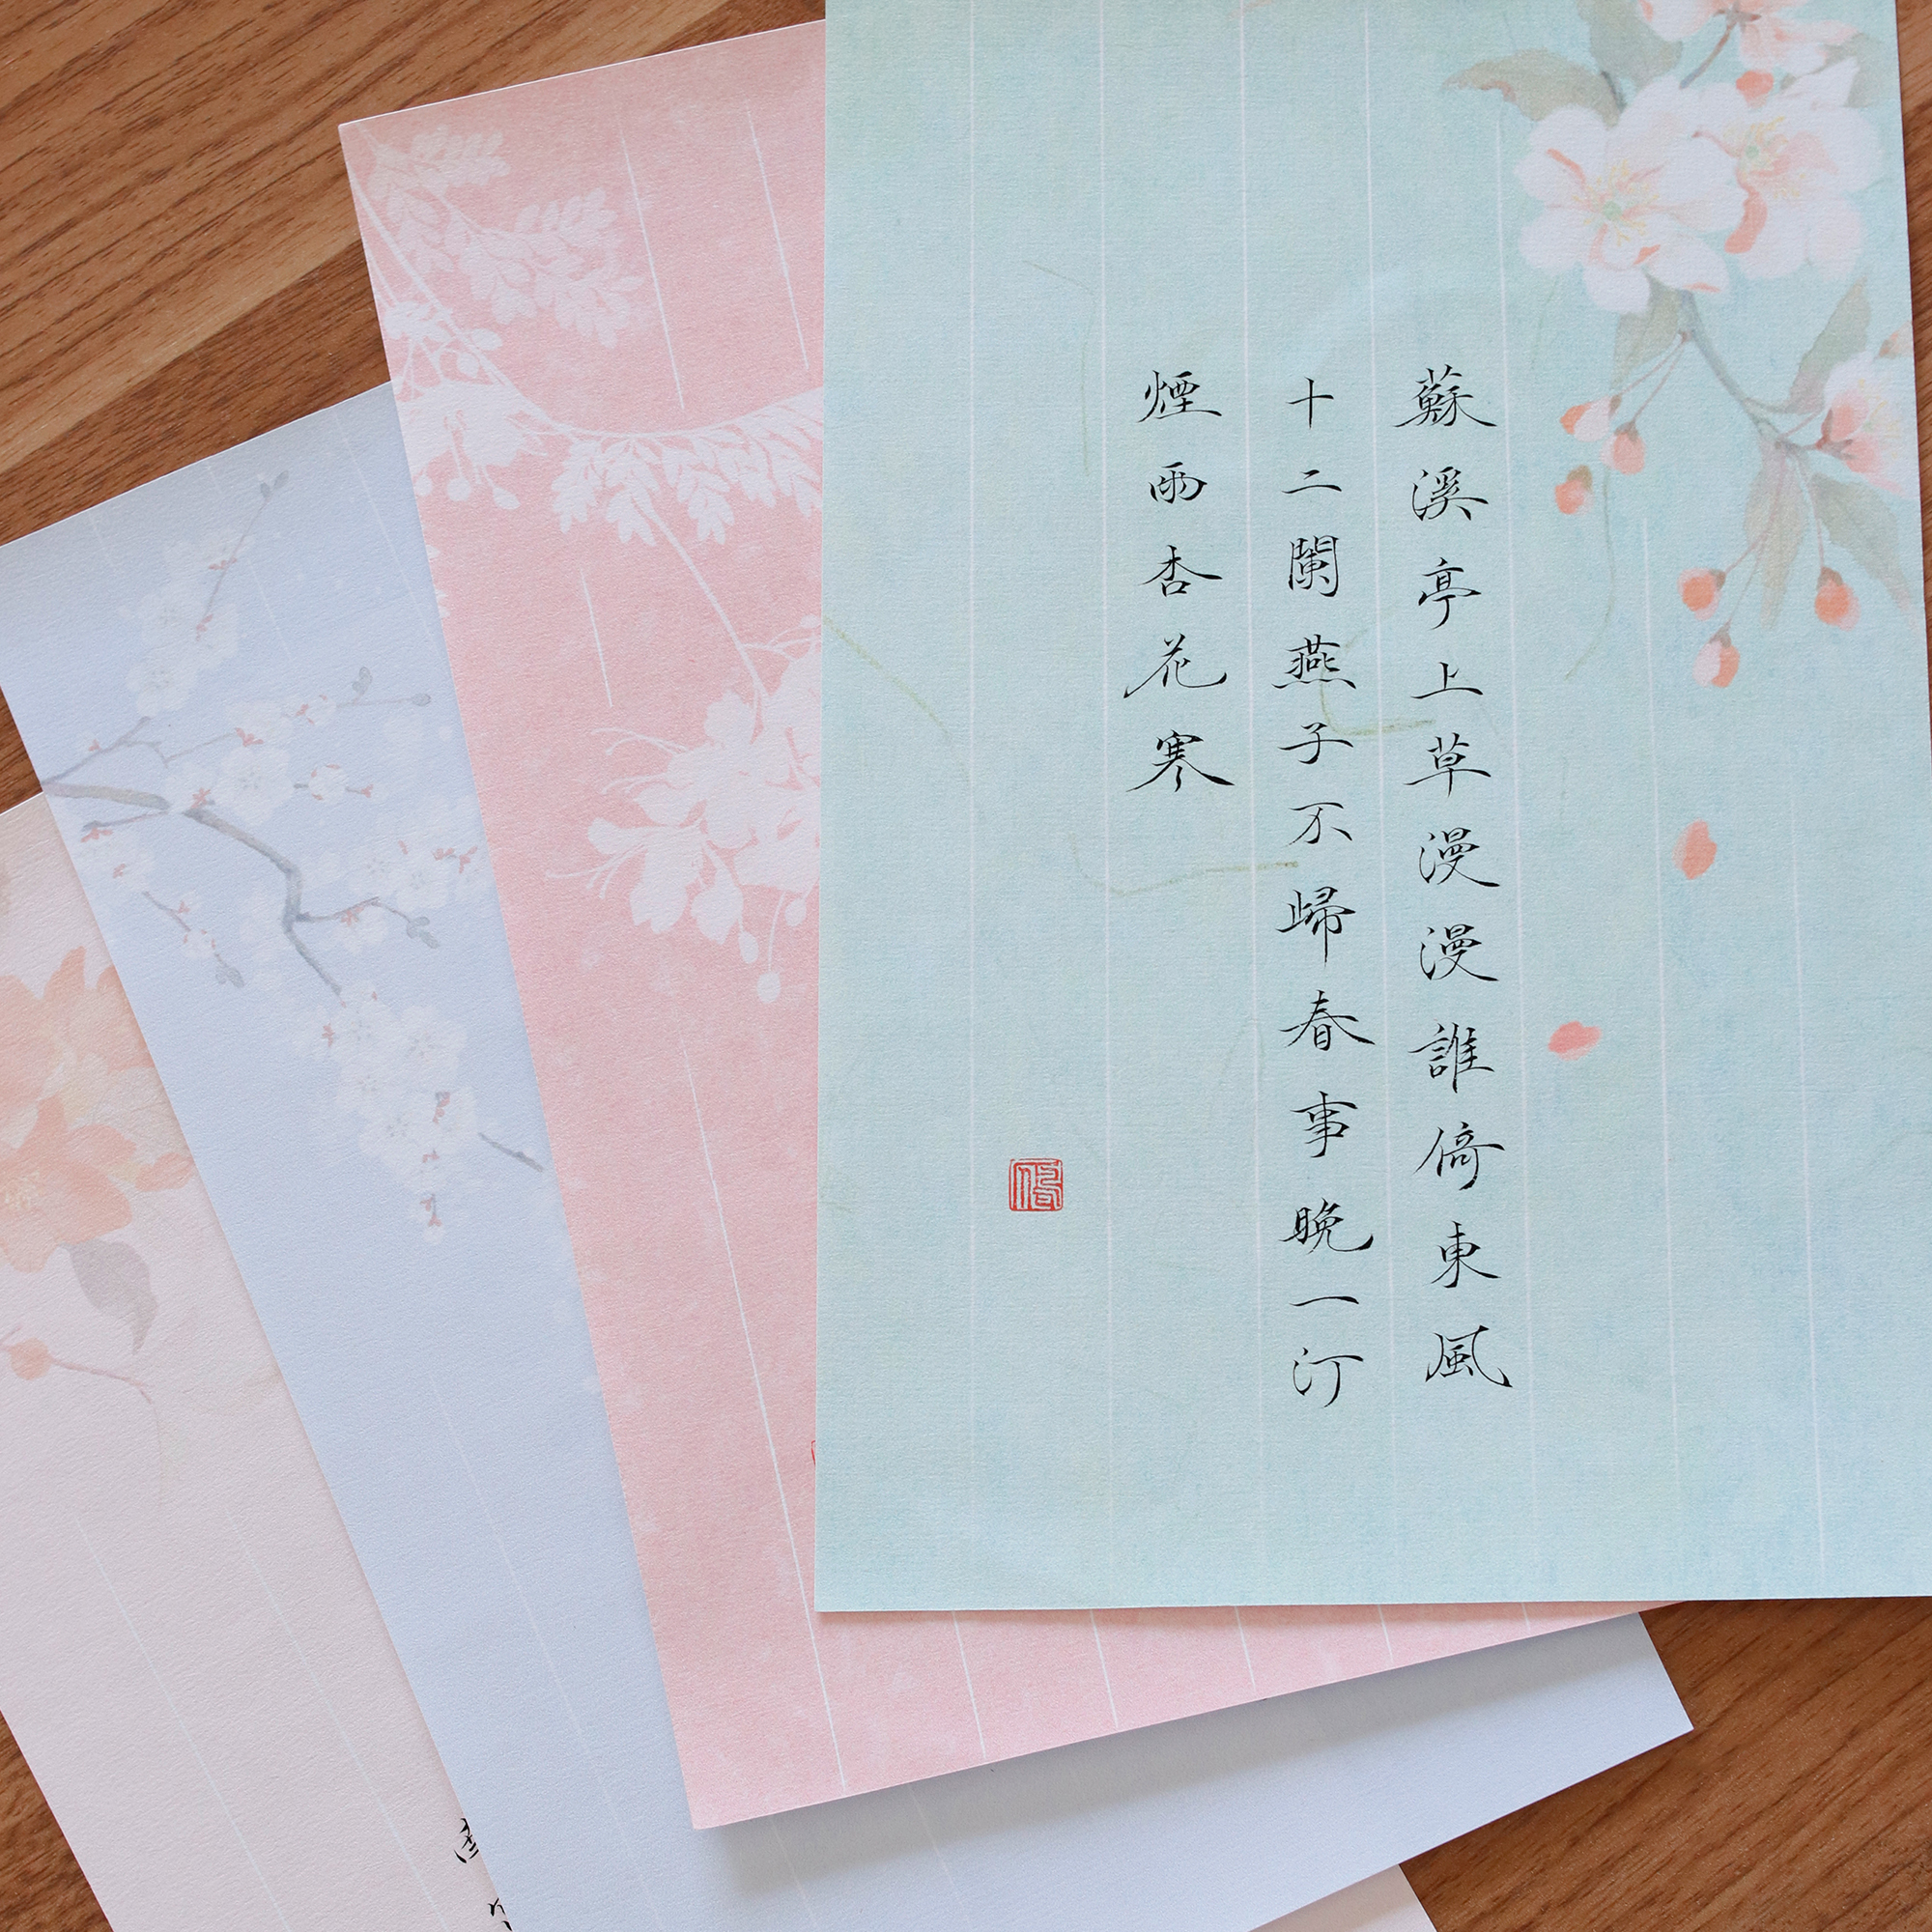 蘇溪亭上草漫漫誰倚東風
十二闌燕子不歸春事晚一汀
煙雨杏花寒